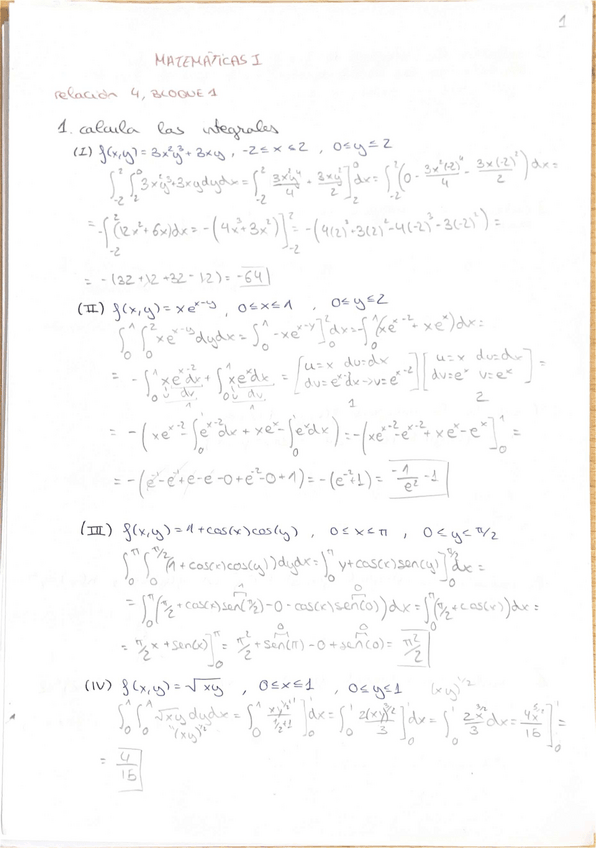 1
MATEMÁTICAS I
relación 4, BLOQUE 1
1. calcula las integrales
(I) f(x,y) = 3x²y³ + 3xy , -2 ≤ x ≤ 2 , 0 ≤ y ≤ 2
∫₋₂² ∫₂⁰ 3x²y³+3xy dydx = ∫₋₂² 3x²y⁴/4 + 3xy²/2 ]₂⁰ dx = ∫₋₂² (0 - 3x²(-2)⁴/4 - 3x(-2)²/2) dx =
= -∫₋₂² (12x²+6x)dx = -(4x³+3x²)]₋₂² = -(4(2)³+3(2)²-4(-2)³-3(-2)²) =
= -(32+12+32-12) = -64
(II) f(x,y) = xe^(x-y) , 0 ≤ x ≤ 1 , 0 ≤ y ≤ 2
∫₀¹ ∫₀² xe^(x-y) dydx = ∫₀¹ -xe^(x-y) ]₀² dx = -∫₀¹ (xe^(x-2) + xe^x) dx =
= -∫₀¹ xe^(x-2) dx + ∫₀¹ xe^x dx = [u=x du=dx dv=e^x dx → v=e^(x-2)] [u=x du=dx dv=e^x v=e^x] =
u dv u dv
1 1 1 2
= -(xe^(x-2) - ∫₀¹ e^(x-2) dx + xe^x - ∫₀¹ e^x dx) = -(xe^(x-2) - e^(x-2) + xe^x - e^x]₀¹ =
= -(e⁻¹-e⁻¹+e-e-0+e⁻²-0+1) = -(e⁻²+1) = -1/e² - 1
(III) f(x,y) = 1+cos(x)cos(y) , 0 ≤ x ≤ π , 0 ≤ y ≤ π/2
∫₀^π ∫₀^(π/2) (1+cos(x)cos(y)) dydx = ∫₀^π y+cos(x)sen(y) ]₀^(π/2) dx =
1 0
= ∫₀^π (π/2 + cos(x)sen(π/2) - 0 - cos(x)sen(0)) dx = ∫₀^π (π/2 + cos(x)) dx =
0 0
= π/2 x + sen(x) ]₀^π = π²/2 + sen(π) - 0 + sen(0) = π²/2
(IV) f(x,y) = √xy , 0 ≤ x ≤ 1 , 0 ≤ y ≤ 1 (xy)^(1/2)
∫₀¹ ∫₀¹ √xy dydx = ∫₀¹ xy^(1/2+1)/(1/2+1) ]₀¹ dx = ∫₀¹ 2(xy)^(3/2)/3 ]₀¹ dx = ∫₀¹ 2x^(3/2)/3 dx = 4x^(5/2)/15 ]₀¹ =
"(xy)^(1/2)
= 4/15